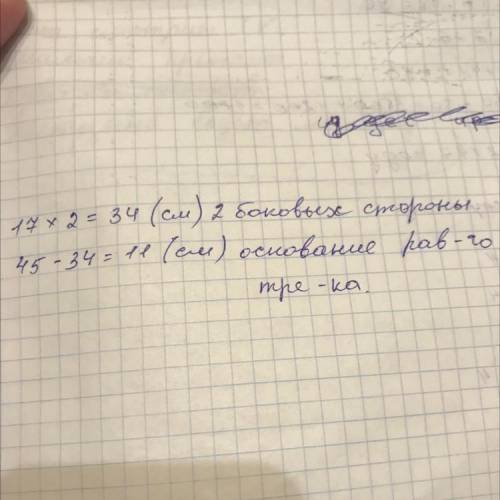 17 × 2 = 34 (см) 2 боковых стороны
45 - 34 = 11 (см) основание рав-го
тре-ка.